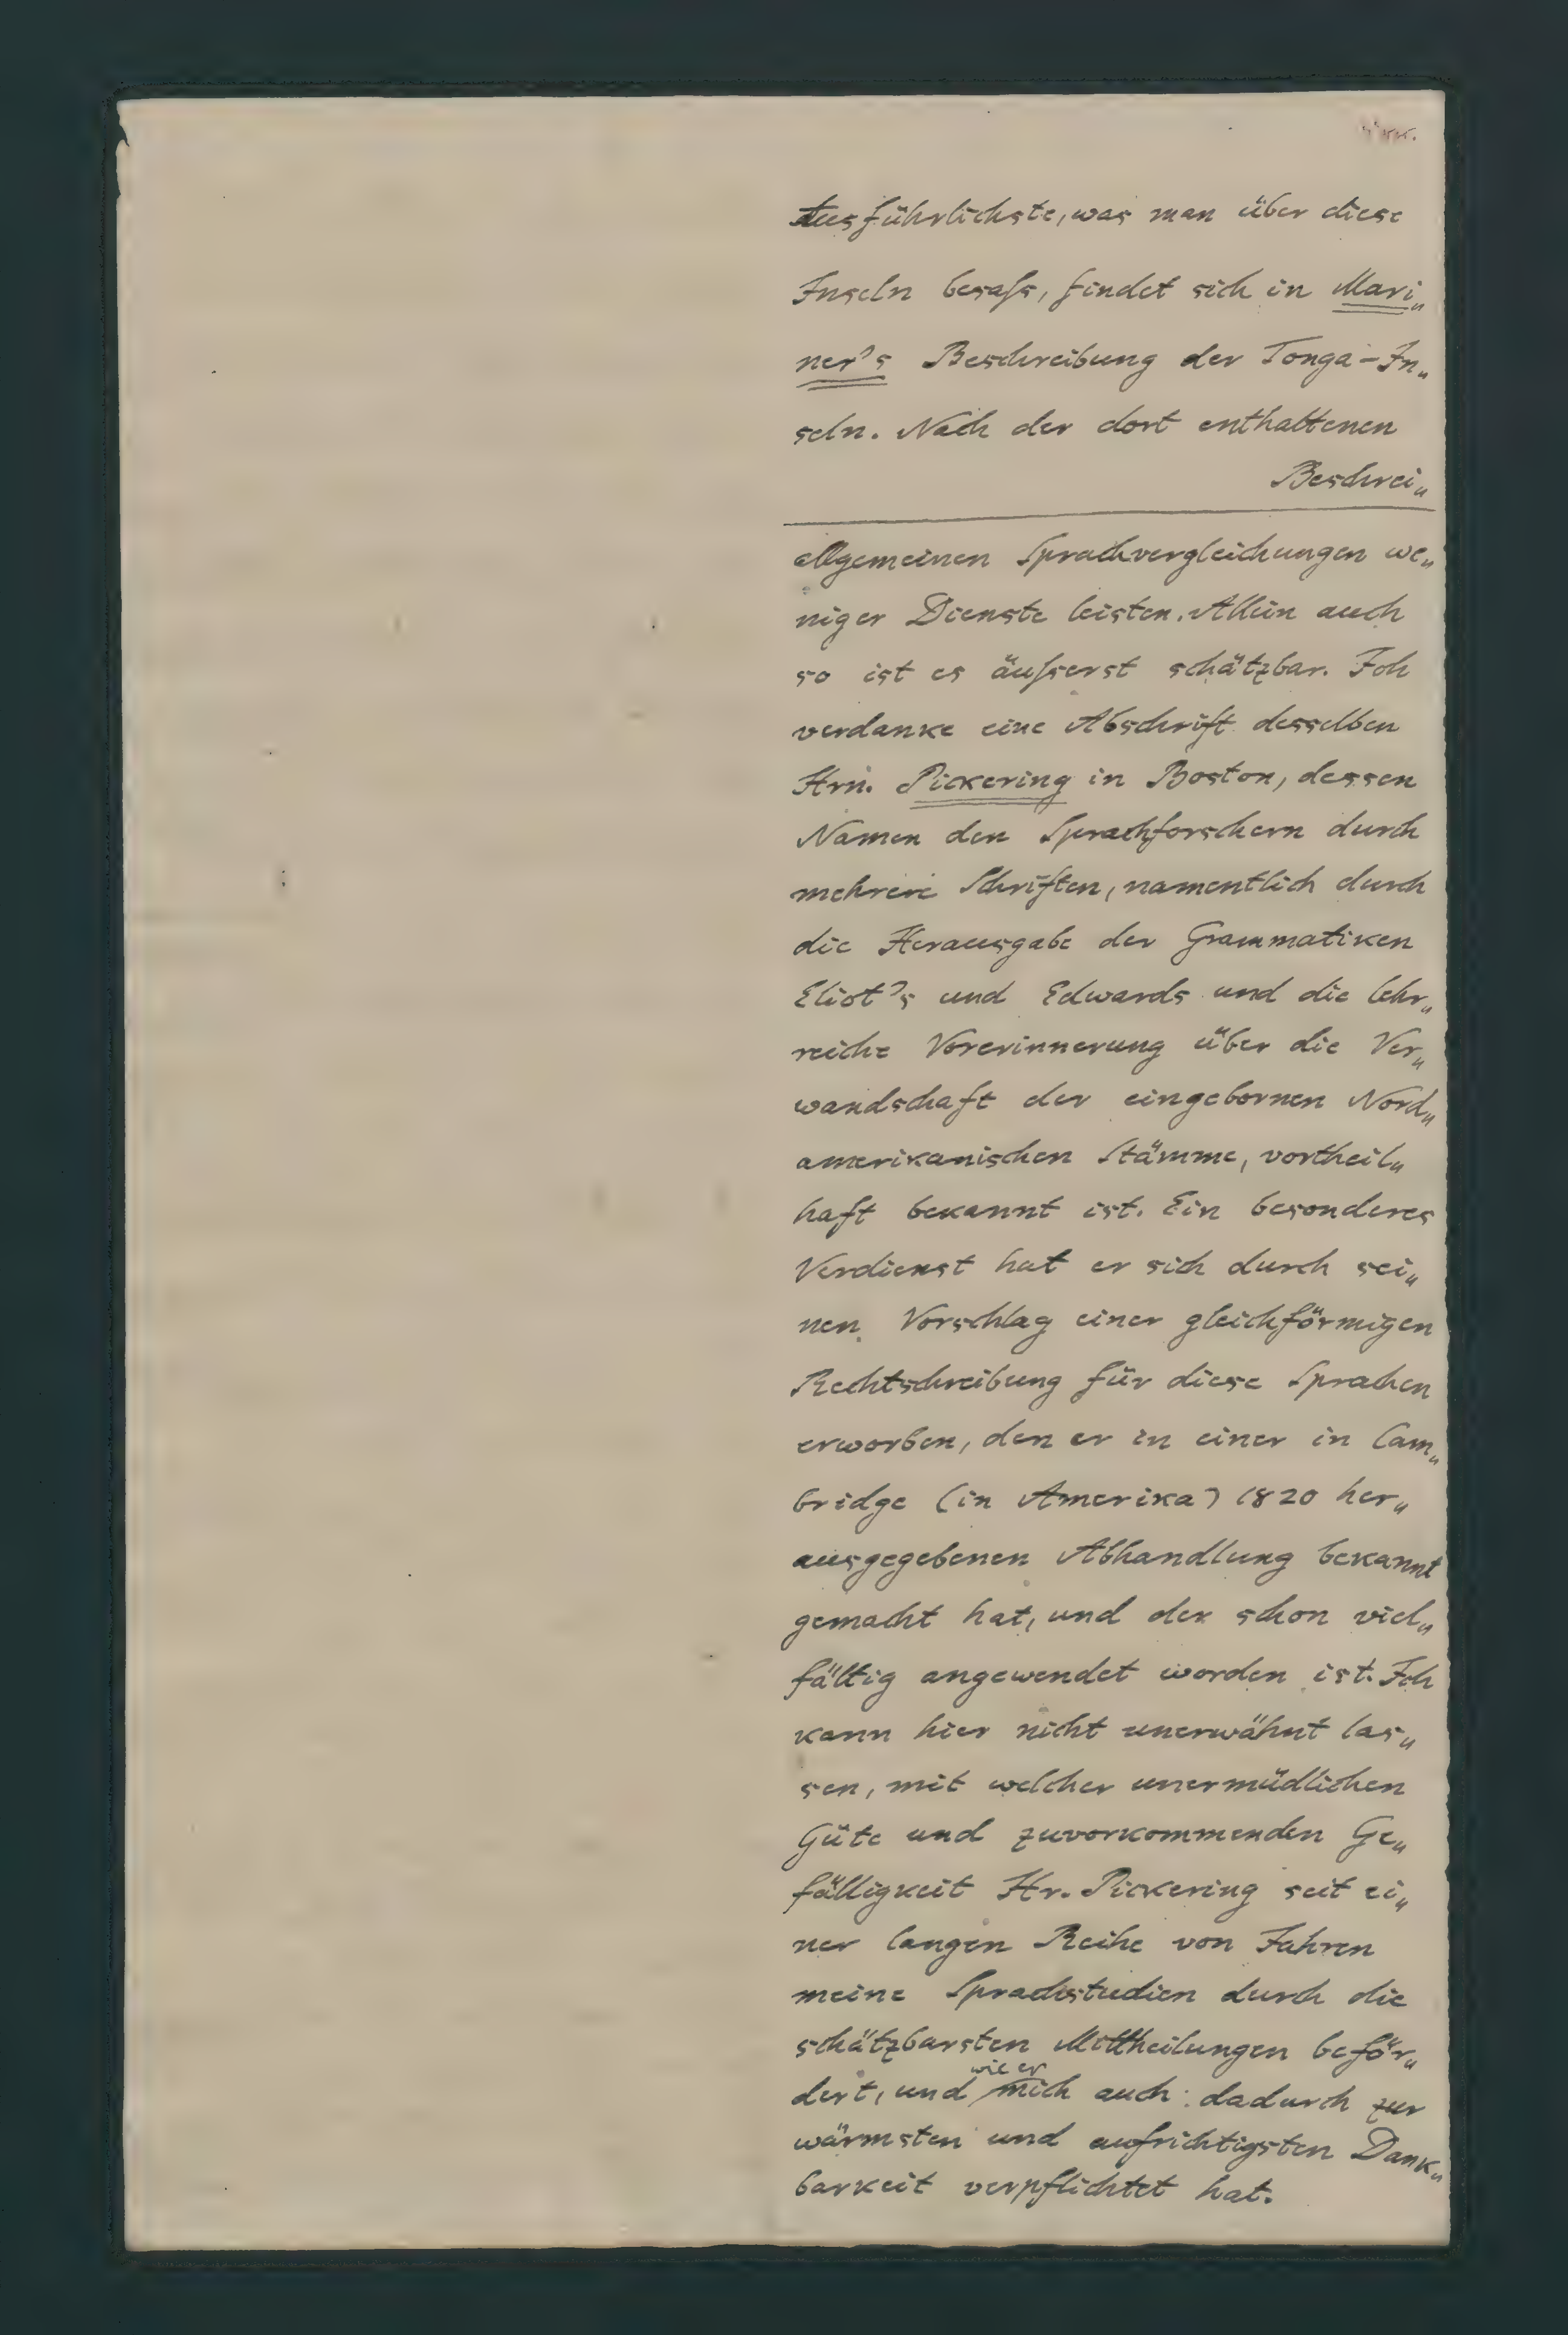 Ausführlichste, was man über diese
Inseln besaſs, findet sich in Mari„
ner's Beschreibung der Tonga-In„
seln. Nach der dort enthaltenen
Beschrei„
allgemeinen Sprachvergleichungen we„
niger Dienste leisten. Allein auch
so ist es äuſserst schätzbar. Ich
verdanke eine Abschrift desselben
Hrn. Pickering in Boston, dessen
Namen den Sprachforschern durch
mehrere Schriften, namentlich durch
die Herausgabe der Grammatiken
Eliot's und Edwards und die lehr„
reiche Vorerinnerung über die Ver„
wandschaft der eingebornen Nord„
amerikanischen Stämme, vortheil„
haft bekannt ist. Ein besonderes
Verdienst hat er sich durch sei„
nen Vorschlag einer gleichförmigen
Rechtschreibung für diese Sprachen
erworben, den er in einer in Cam„
bridge (in Amerika) 1820 her„
ausgegebenen Abhandlung bekannt
gemacht hat, und der schon viel„
fältig angewendet worden ist. Ich
kann hier nicht unerwähnt las„
sen, mit welcher unermüdlichen
Güte und zuvorkommenden Ge„
fälligkeit Hr. Pickering seit ei„
ner langen Reihe von Jahren
meine Sprachstudien durch die
schätzbarsten Mittheilungen beför„
dert, und wie er mich auch dadurch zur
wärmsten und aufrichtigsten Dank„
barkeit verpflichtet hat.